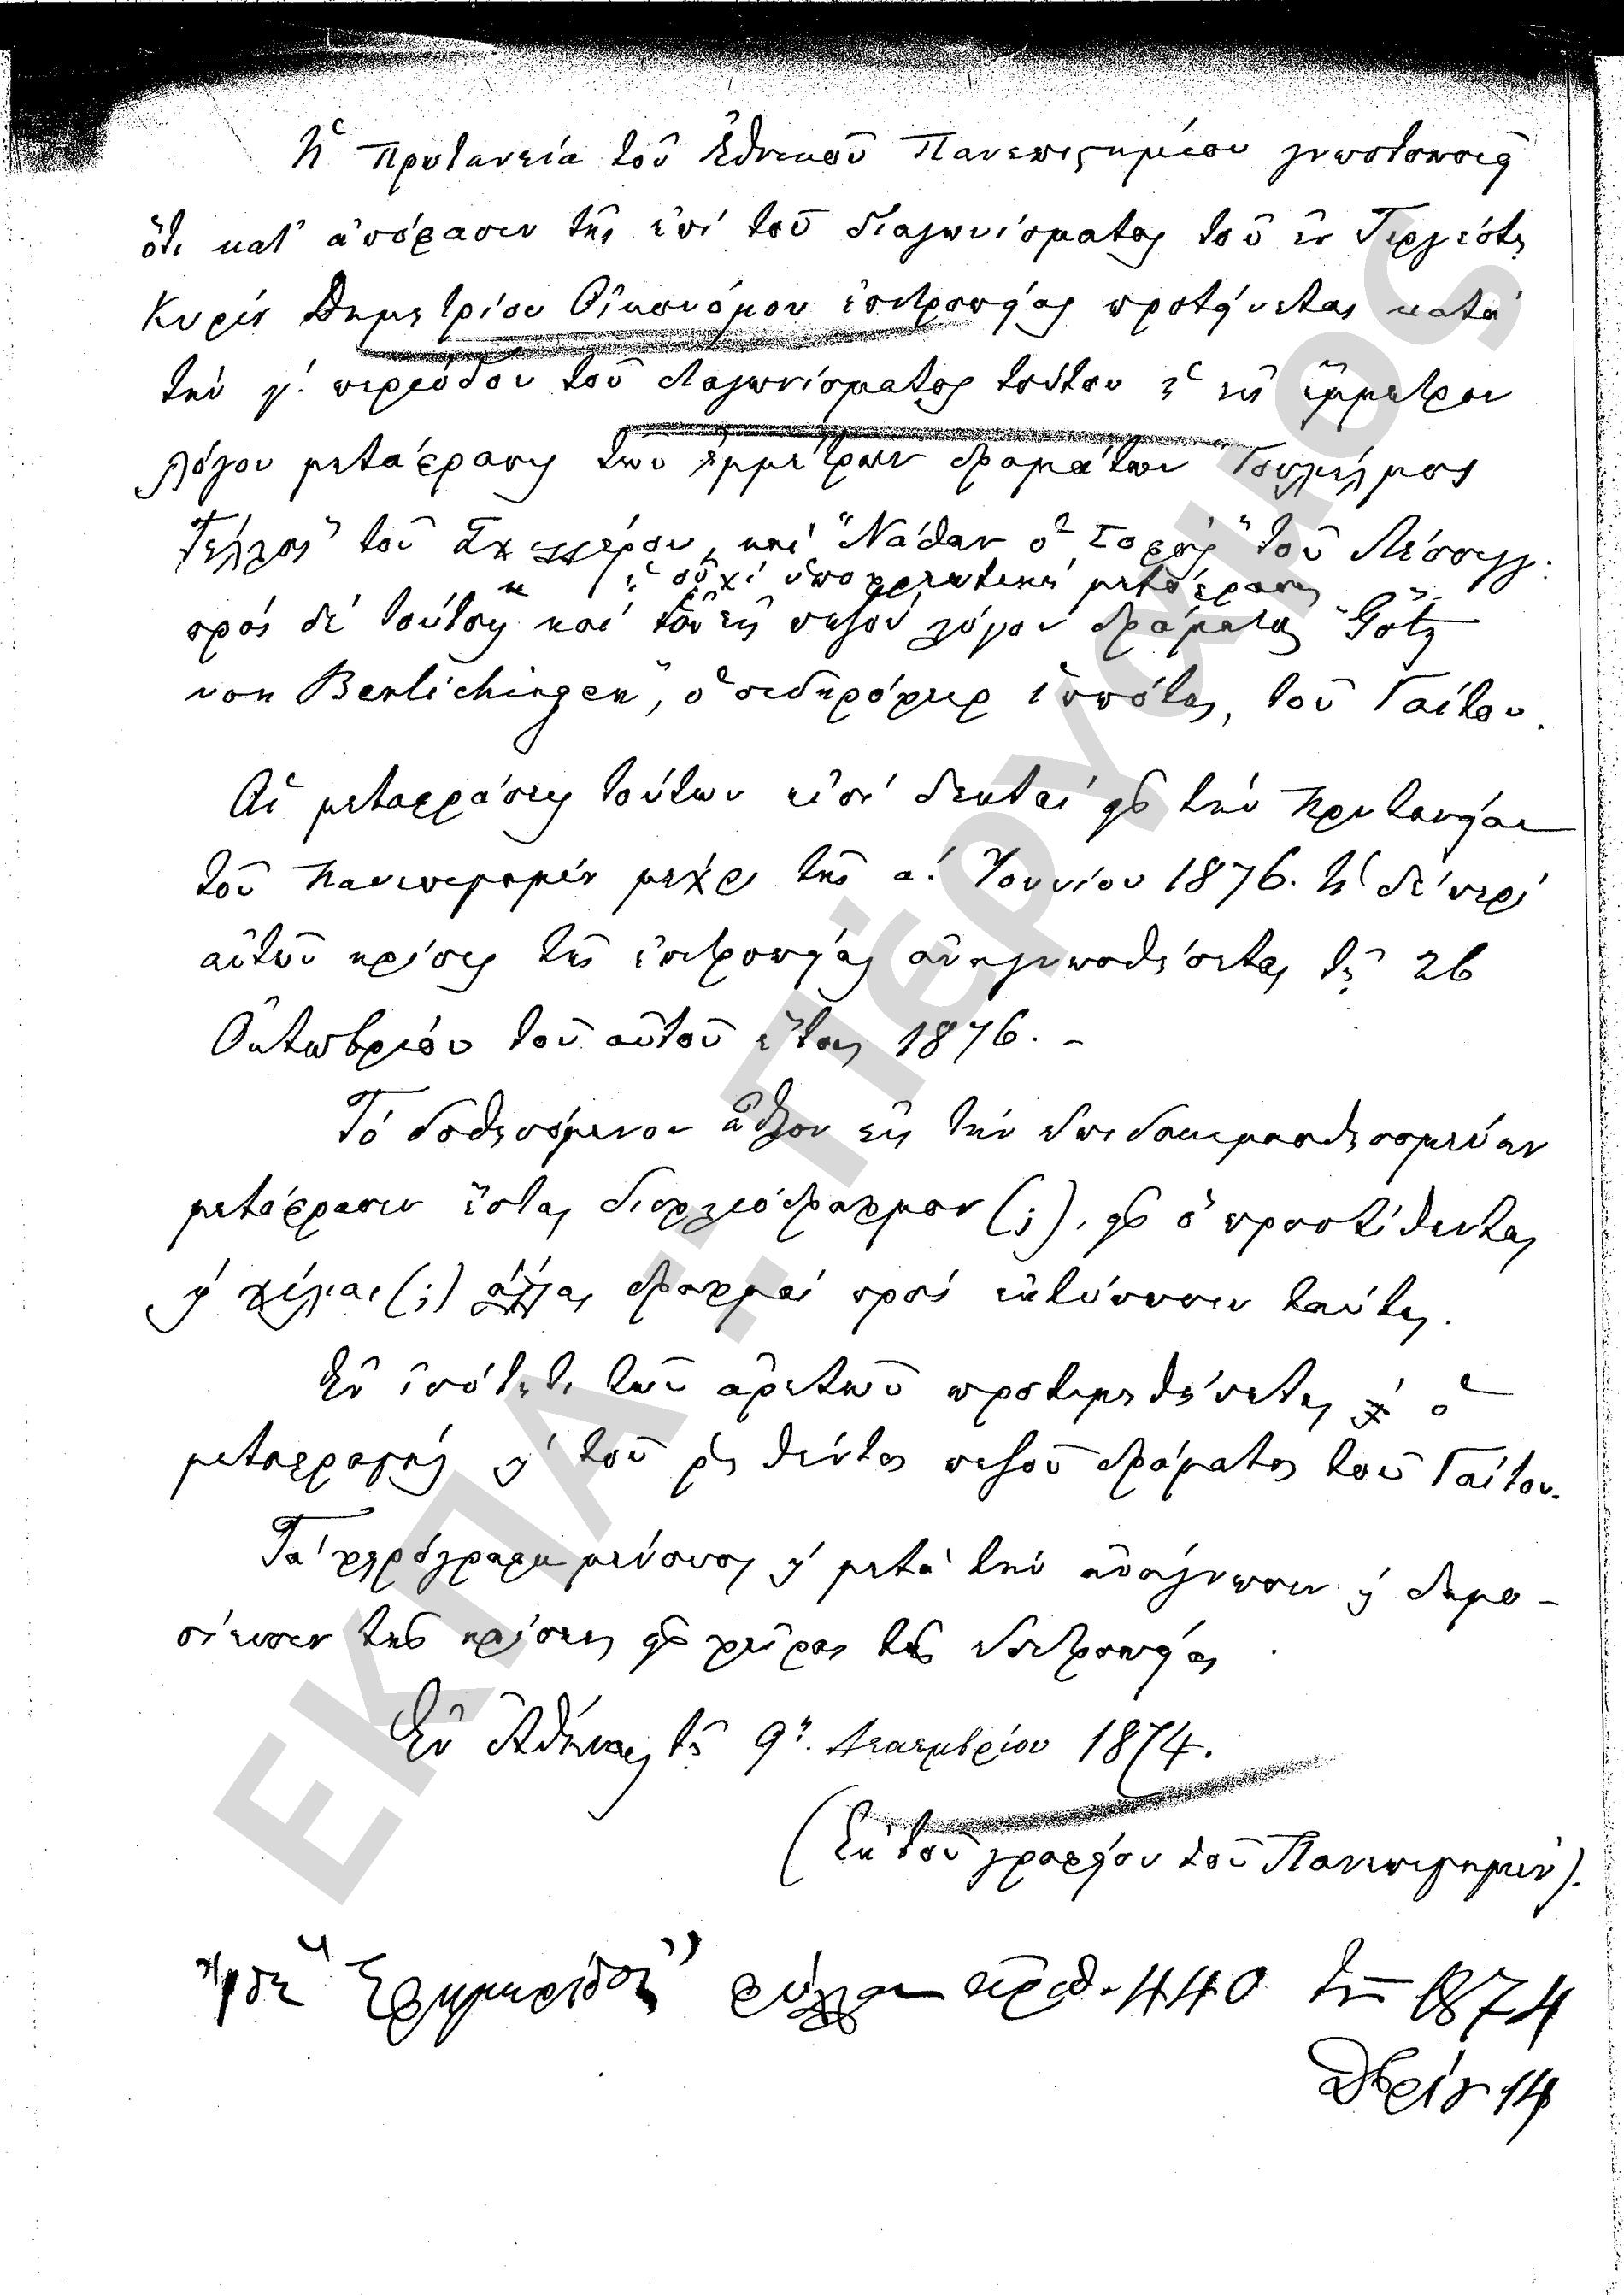 Ἡ Πρυτανεία τοῦ Ἐθνικοῦ Πανεπιστημίου γνωστοποιεῖ
ὅτι κατ' ἀπόφασιν τῆς ἐπὶ τοῦ διαγωνίσματος τοῦ ἐν Τεργέστῃ
Κυρίου Δημητρίου Οἰκονόμου ἐπιτροπείας προτείνεται κατὰ
τὴν γ΄. περίοδον τοῦ διαγωνίσματος τούτου ἡ εἰς ἔμμετρον
λόγον μετάφρασις τῶν ἐμμέτρων δραμάτων "Γουλιέλμος
Τέλλος" τοῦ Σχιλλέρου, καὶ "Νάθαν ὁ Σοφός" τοῦ Λέσσιγγ.
ἡ οὐχὶ ὑποχρεωτικὴ μετάφρασις
πρὸς δὲ τούτοις καὶ τοῦ εἰς πεζὸν λόγον δράματος "Götz
von Berlichingen", ὁ σιδηρόχειρ ἱππότης, τοῦ Γαίτου.
Αἱ μεταφράσεις τούτων εἰσὶ δεκταὶ εἰς τὴν Πρυτανείαν
τοῦ Πανεπιστημίου μέχρι τῆς α΄. Ἰουνίου 1876. Ἡ δὲ περὶ
αὐτῶν κρίσις τῆς ἐπιτροπείας ἀναγνωσθήσεται τῇ 26
Ὀκτωβρίου τοῦ αὐτοῦ ἔτους 1876. –
Τὸ δοθησόμενον ἆθλον εἰς τὴν ἐπιδοκιμασθησομένην
μετάφρασιν ἔσται δισχιλιόδραχμον (;), εἰς ὃ προστίθενται
καὶ χίλιαι (;) ἄλλαι δραχμαὶ πρὸς ἐκτύπωσιν ταύτης.
Ἐν ἰσότητι τῶν ἀρετῶν προτιμηθήσεται ὁ
μεταφραστὴς καὶ τοῦ ῥηθέντος πεζοῦ δράματος τοῦ Γαίτου.
Τὰ χειρόγραφα μένουσι καὶ μετὰ τὴν ἀνάγνωσιν καὶ δημο-
σίευσιν τῆς κρίσεως εἰς χεῖρας τῆς ἐπιτροπείας.
Ἐν Ἀθήναις τῇ 9ῃ. Δεκεμβρίου 1874.
(Ἐκ τοῦ γραφείου τοῦ Πανεπιστημίου).
"Ἐφημερίδος" φύλλον ἀριθ. 440 τοῦ 1874
14
ΕΚΠΑ-ΠΕΡΓΑΜΟΣ